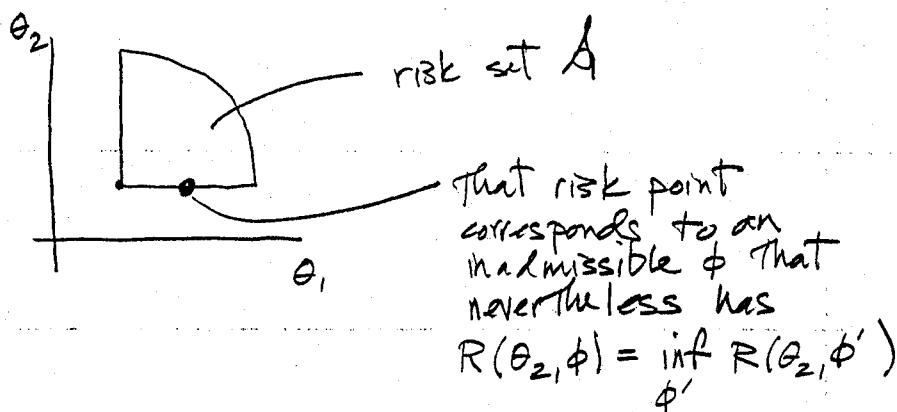 θ₂
risk set 𝒮
That risk point
corresponds to an
inadmissible ϕ that
nevertheless has
R(θ₂,ϕ) = inf R(θ₂,ϕ′)
ϕ′
θ₁